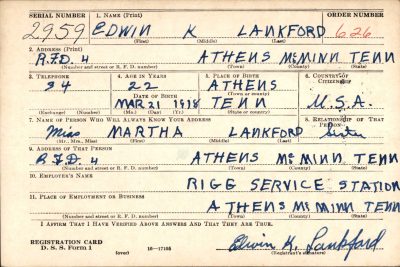 SERIAL NUMBER 1. NAME (Print) ORDER NUMBER
2959 EDWIN K LANKFORD 626
(First) (Middle) (Last)
2. ADDRESS (Print)
R.F.D. 4 ATHENS McMINN TENN
(Number and street or R. F. D. number) (Town) (County) (State)
3. TELEPHONE 4. AGE IN YEARS 5. PLACE OF BIRTH 6. COUNTRY OF CITIZENSHIP
34 22 ATHENS
DATE OF BIRTH (Town or county)
MAR 21 1918 TENN U.S.A.
(Exchange) (Number) (Mo.) (Day) (Yr.) (State or country)
7. NAME OF PERSON WHO WILL ALWAYS KNOW YOUR ADDRESS 8. RELATIONSHIP OF THAT PERSON
Miss MARTHA LANKFORD Sister
(Mr., Mrs., Miss) (First) (Middle) (Last)
9. ADDRESS OF THAT PERSON
R.F.D. 4 ATHENS McMINN TENN
(Number and street or R. F. D. number) (Town) (County) (State)
10. EMPLOYER'S NAME
RIGG SERVICE STATION
11. PLACE OF EMPLOYMENT OR BUSINESS
ATHENS McMINN TENN
(Number and street or R. F. D. number) (Town) (County) (State)
I AFFIRM THAT I HAVE VERIFIED ABOVE ANSWERS AND THAT THEY ARE TRUE.
REGISTRATION CARD
D. S. S. Form 1 (over) 16—17105 Edwin K. Lankford
(Registrant's signature)